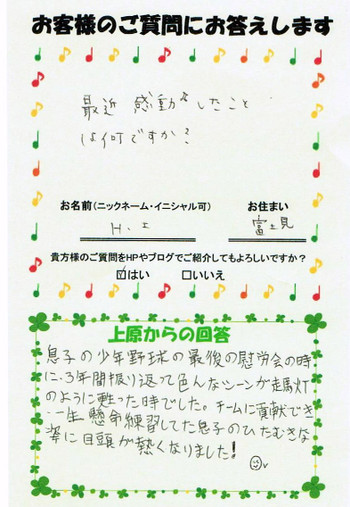 お客様のご質問にお答えします
最近 感動したこと
は何ですか?
お名前(ニックネーム・イニシャル可)
お住まい
H.I
富士見
貴方様のご質問をHPやブログでご紹介してもよろしいですか?
☑はい □いいえ
上原からの回答
息子の少年野球の最後の慰労会の時
に、3年間振り返って色んなシーンが走馬灯
のように甦った時でした。チームに貢献でき
一生懸命練習してた息子のひたむきな
姿に目頭が熱くなりました!